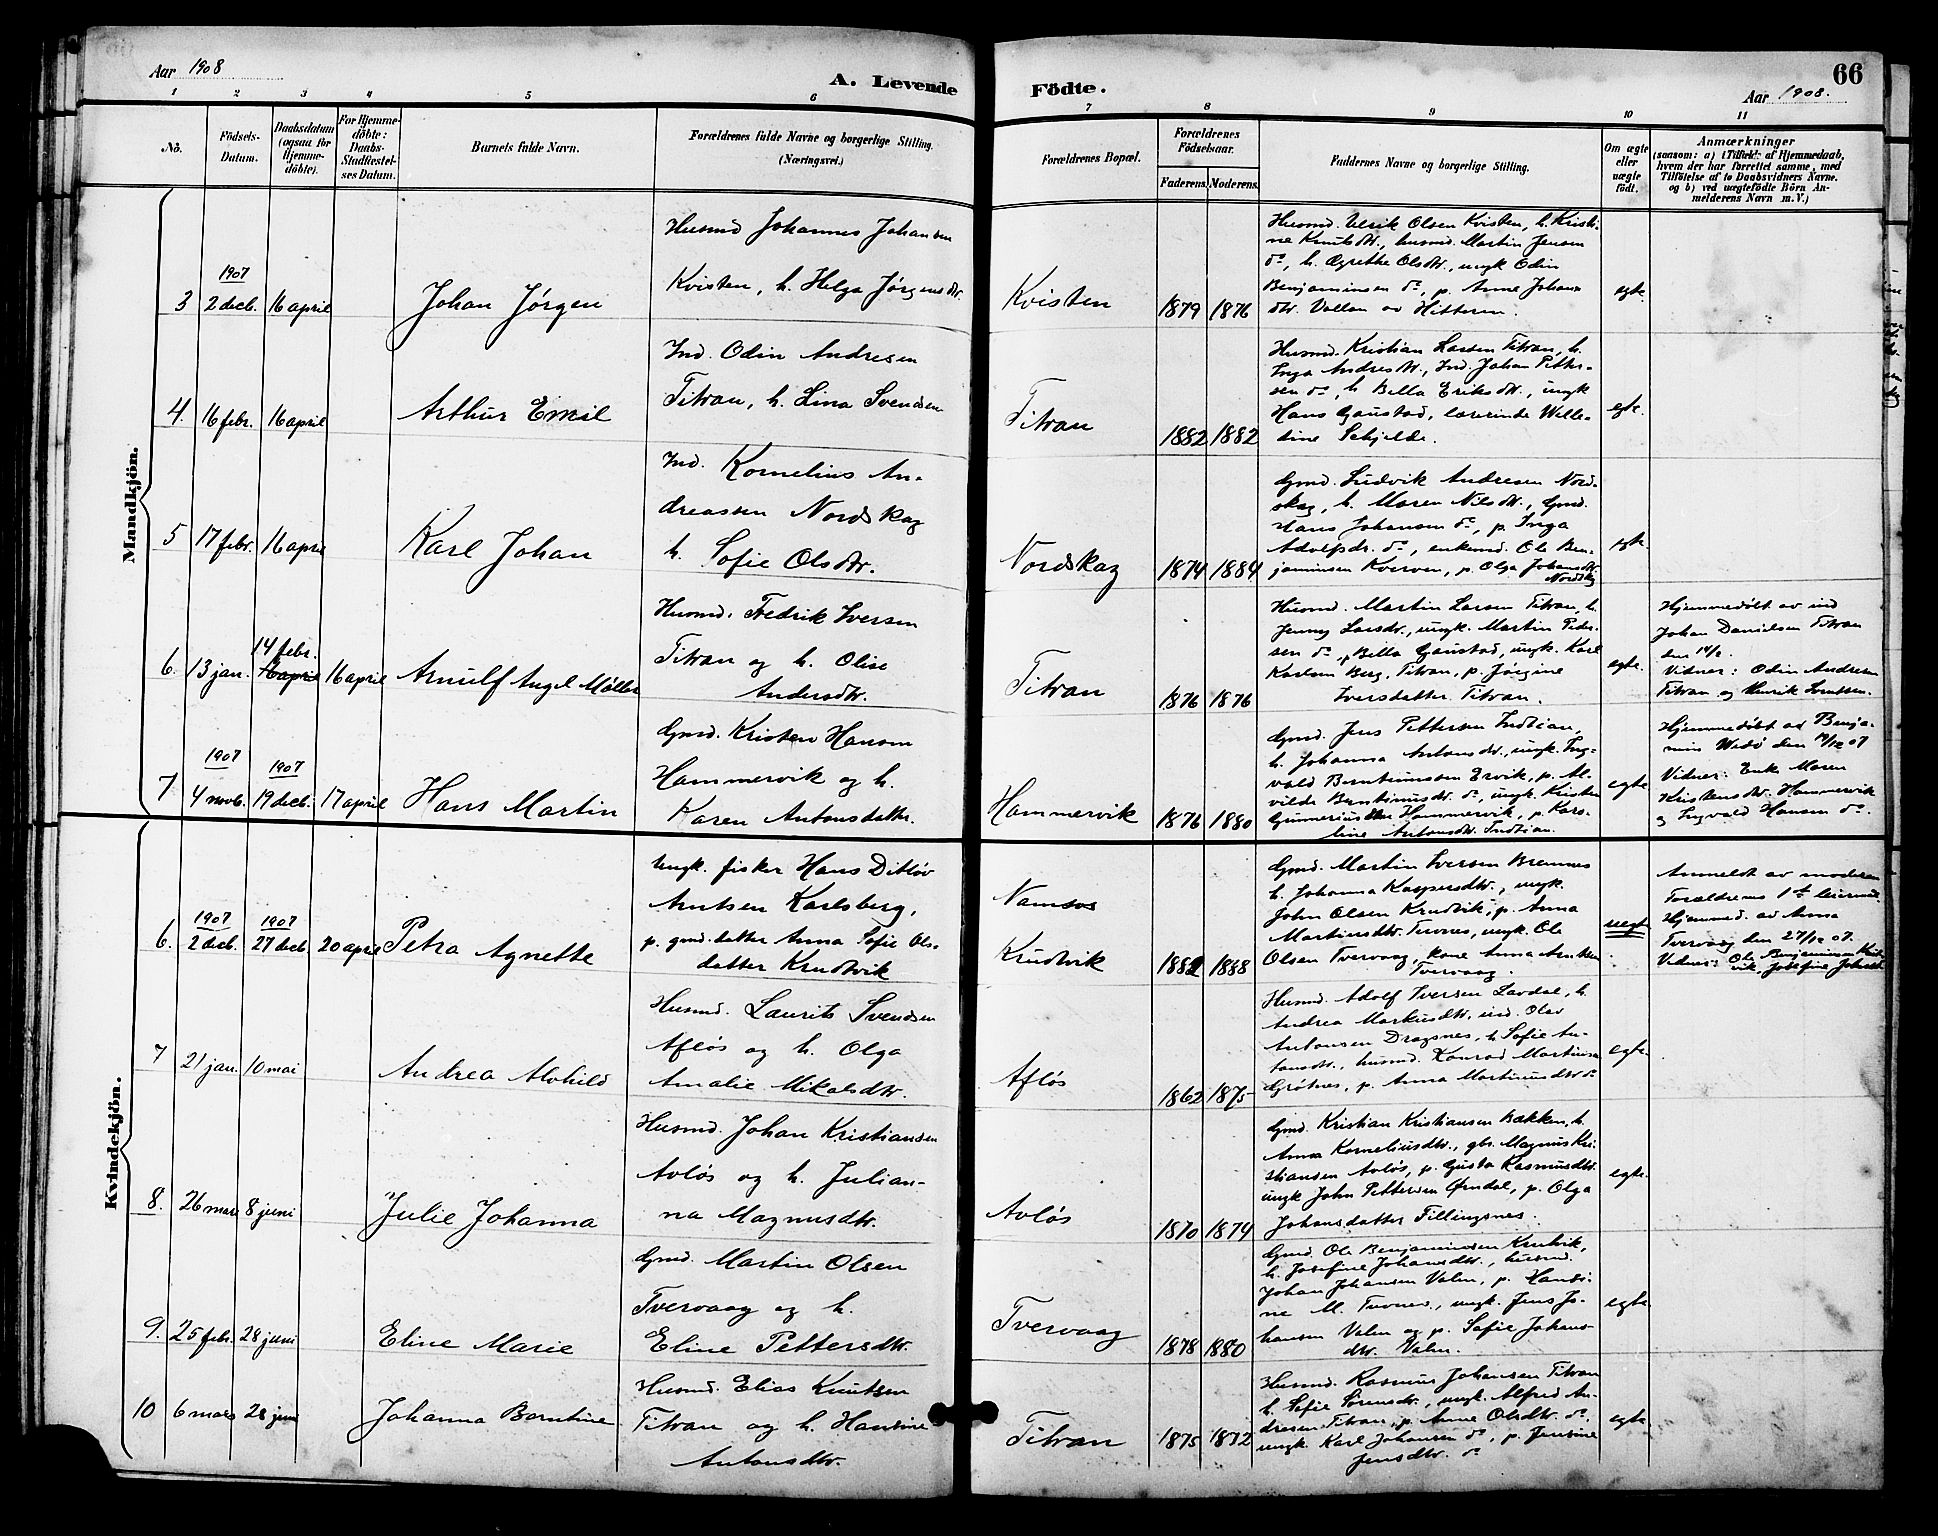 Aar 1908
A. Levende
Födte.
66
Aar 1908.
1 2 3 4 5 6 7 8 9 10 11
No.
Födsels-
Datum.
Daabsdatum
(ogsaa for
Hjemme-
döbte).
For Hjemme-
döbte:
Daabs-
Stadfæstel-
ses Datum.
Barnets fulde Navn.
Forældrenes fulde Navne og borgerlige Stilling.
(Næringsvei.)
Forældrenes Bopæl.
Forældrenes
Födselsaar.
Faderens. Moderens.
Faddernes Navne og borgerlige Stilling.
Om ægte
eller
uægte
födt.
Anmærkninger
(saasom: a) i Tilfælde af Hjemmedaab,
hvem der har forrettet samme, med
Tilföielse af to Daabsvidners Navne.
og b) ved uægtefödte Börn An-
melderens Navn m.V.)
Mandkjön.
3
1907
2 decb.
16 april
Johan Jörgen
Husmd Johannes Johansen
Kvisten, h. Helga Jørgensdtr.
Kvisten
1879 1876
Husmd. Ulrik Olsen Kvisten, h. Kristi-
ne Knutsdtr., husmd. Martin Jensen
do, h. Ågrethe Olsdtr., ungk Odin
Benjaminsen do, p. Anne Johans
dtr. Vollan av Hitteren.
egte.
4.
16 febr.
16 april
Arthur Emil
Ind. Odin Andresen
Titran, h. Lina Svendsen
Titran
1882 1882
Husmd. Kristian Larsen Titran, h.
Inga Andresdtr, Ind. Johan Petter-
sen do, h Bella Eriksdtr., ungk
Hans Gaustad, lærerinde Wille-
sine Schjelde.
egte.
5
17 febr.
16 april
Karl Johan
Ind. Kornelius An-
dreassen Nordskag
h. Sofie Olsdtr.
Nordskag
1874 1884
Gmd. Ludvik Andresen Nord-
skag, h. Maren Nilsdtr, Gmd.
Hans Johansen do, p. Inga
Adolfsdr. do, enkemd. Ole Ben-
jaminsen Kverven, p. Olga Johansdtr
Nordskag
egte.
6.
13 jan.
14 febr.
16 april
16 april
Arnulf Angel Møller
Husmd. Fredrik Iversen
Titran og h. Olise
Andersdtr.
Titran
1876 1876
Husmd. Martin Larsen Titran, h.
Jenny Larsdtr., ungk. Martin Peder-
sen do, p Bella Gaustad, ungk. Karl
Karlsen Berg, Titran, p. Jørgine
Iversdatter Titran.
egte.
Hjemmedøbt av ind
Johan Danielsen Titran
den 14/2
Vidner: Odin Andresen
Titran og Henrik
7
1907
4 novb.
1907
19 decb.
17 april
Hans Martin
Gmd. Kristen Hansen
Hammervik og h.
Karen Antonsdatter.
Hammervik
1876 1880
Gmd. Jens Pettersen Indtian,
h. Johanna Antonsdtr., ungk. Ing-
vald Berntinusen Ervik, p. Al-
vilde Berntinusdtr. do, ungk. Kristen
Gunnerius Hammervik, p. Kars-
line Antonsdtr. Indtian.
egte
Hjemmedøbt av Benja-
min Wedø den 19/12 07
Vidner: Enke Maren
Kristensdtr. Hammervik
og Ingvald Hansen do.
Kvindekjön.
6.
1907
2 decb.
1907
27 decb
20 april
Petra Agnette
Ungk. fisker Hans Ditløv
Arntsen Karlsberg,
p. gmd.datter Anna Sofie Ols-
datter Krudtvik
Namsos
Krudtvik
1882 1888
Gmd. Martin Iversen Bremnes
h. Johanna Kaspersdtr., ungk.
John Olsen Krudtvik, p. Anna
Martinsdtr. Tervnes, ungk. Ole
Olsen Tvervaag, kone Anna Arntsen
Tvervaag.
uegte.
Anmeldt av moderen
Forældrenes 1ste leiermaal
Hjemmed. av Anna
Tvervaag den 27/12 07.
Vidner: Ole Benjaminsen Krut-
vik, Josefine Johansd
7
21 jan.
10 mai
Andrea Alvhild
Husmd. Laurits Svendsen
Afløs og h. Olga
Amalie Mikalsdtr.
Afløs
1862 1875
Husmd. Adolf Iversen Lavdal, h.
Andrea Markusdtr, ind. Olav
Antonsen Dragsnes, h. Sofie An-
tonsdtr., husmd. Konrad Martinsen
Grøtnes, p. Anna Martinusdtr do
egte.
8.
26 mar
8 juni
Julie Johanna
Husmd. Johan Kristiansen
Avløs og h. Julian-
na Magnusdtr.
Avløs
1870 1874
Gmd. Kristian Kristiansen Bakken, h.
Anna Korneliusdtr., gbr. Magnus Kri-
stiansen Avløs, p. Gusta Rasmusdtr.
ungk John Pettersen Ørndal, p. Olga
Johansdatter Fillingsnes.
egte.
9.
25 febr.
28 juni
Eline Marie
Gmd. Martin Olsen
Tvervaag og h.
Eline Pettersdtr.
Tvervaag
1878 1880
Gmd. Ole Benjaminsen Krutvik,
h. Josefine Johansdtr., husmd.
Johan Johansen Valen, p. Hansi-
ne M. Tervnes, ungk. Jens Jo-
hansen Valen og p. Sofie Johans-
dtr. Valen.
egte.
10
6 mars
28 juni
Johanna Berntine
Husmd. Elias Knutsen
Titran og h. Hansine
Antonsdtr.
Titran
1875 1872
Husmd. Rasmus Johansen Titran
h. Sofie Sørensdtr., ungk. Alfred An-
dresen Titran, p. Anne Olsdtr. do.
ungk. Karl Johansen do, p. Jensine
Jensdtr. do
egte.